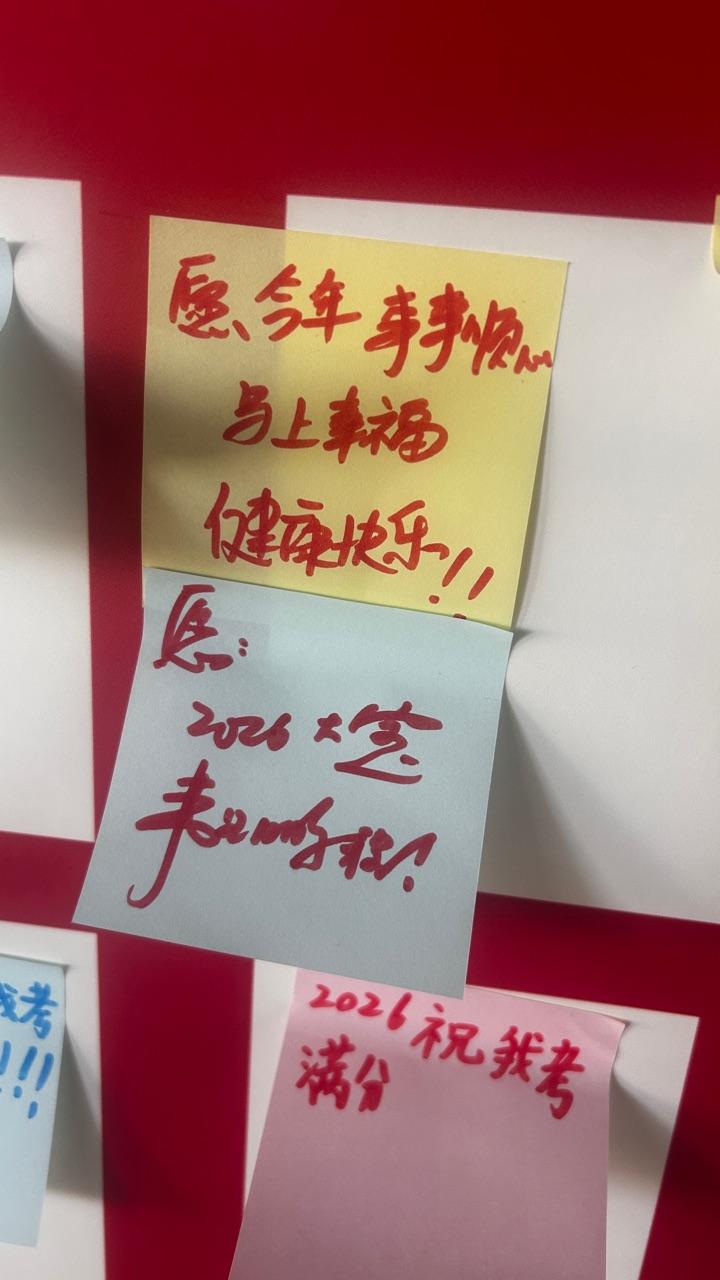 愿今年事事顺心
马上幸福
健康快乐!!
愿:
2026 大
2026 祝我考
满分
我考
!!!